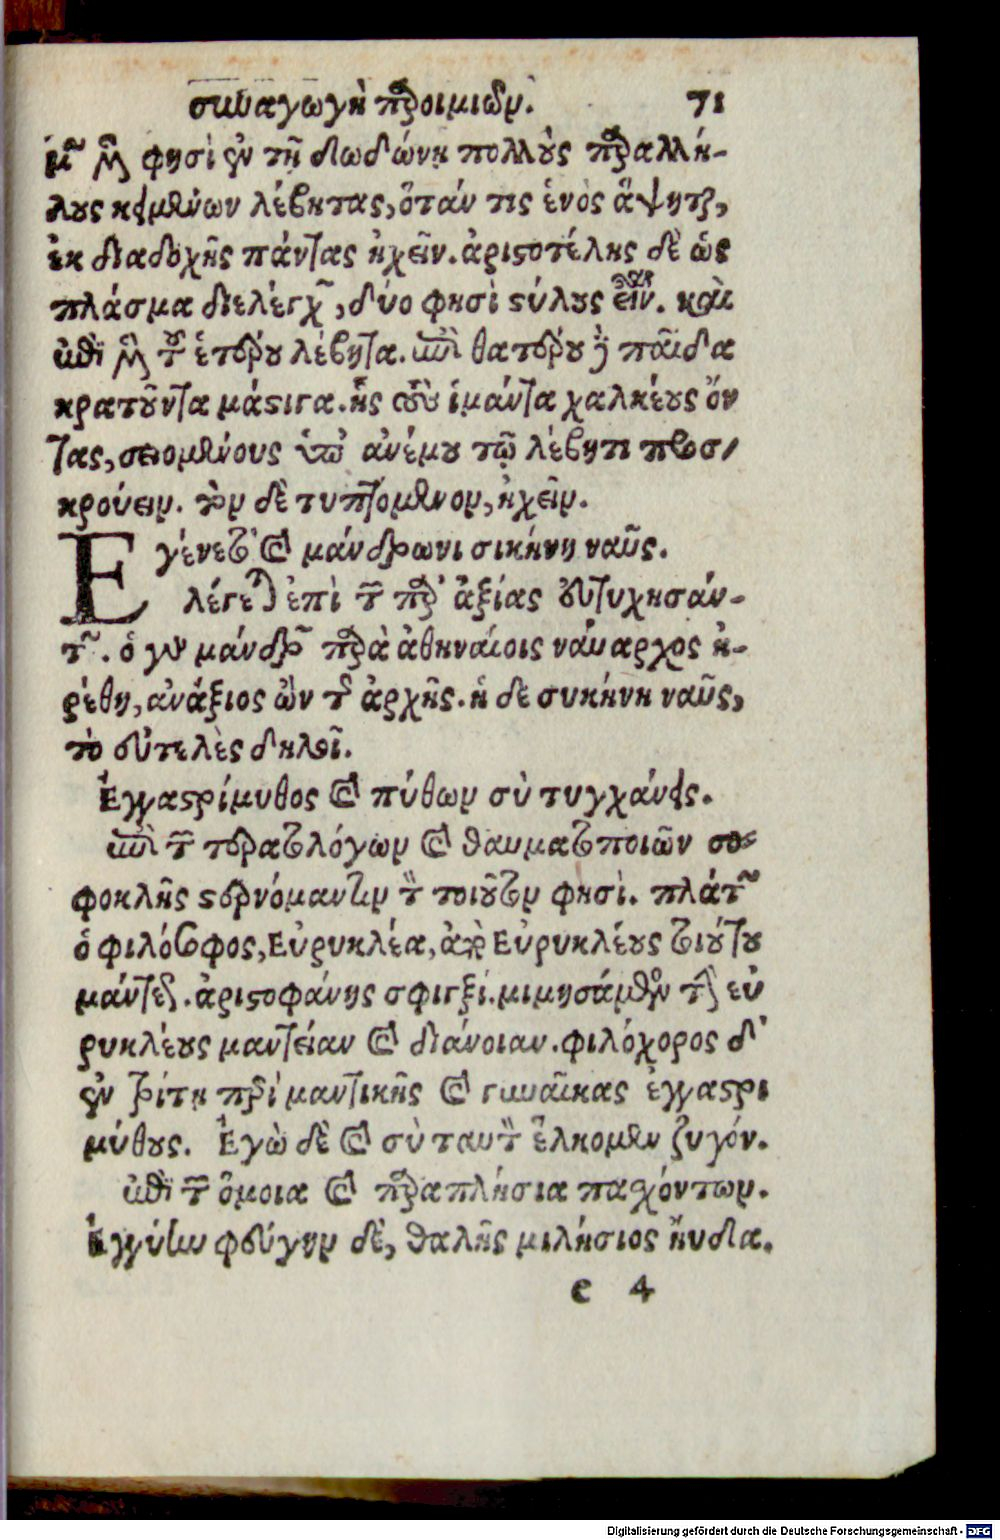 συναγωγὴ παροιμιῶν. 71
μων μὲν φησὶ ἐν τῇ διωδώνη πολλοὺς παραλλή-
λους κειμένων λέβητας, ὅταν τις ἑνὸς ἅψηται,
ἐκ διαδοχῆς πάντας ἠχεῖν. ἀριστοτέλης δὲ ὡς
πλάσμα διελέγχων, δύο φησὶ στύλους εἶναι. καὶ
ἐπὶ μὲν τοῦ ἑτέρου λέβητα. ἐπὶ θατέρου δὲ παῖδα
κρατοῦντα μάστιγα. ἧς τοὺς ἱμάντα χαλκέους ὄν
τας, σειομένους ὑπὸ ἀνέμου τῷ λέβητι προσ-
κρούειν. τὸν δὲ τυπτόμενον, ἠχεῖν.
Εγένετο καὶ μάνδρωνι σικήνη ναῦς.
λέγεται ἐπὶ τῶν παρ' ἀξίας εὐτυχησάν-
των. ὁ γοῦν μάνδρων παρὰ ἀθηναίοις ναύαρχος ἡ-
ρέθη, ἀνάξιος ὢν τῆς ἀρχῆς. ἡ δὲ συκήνη ναῦς,
τὸ εὐτελὲς δηλοῖ.
Ἐγγαστρίμυθος καὶ πύθων σὺ τυγχάνεις.
ἐπὶ τῶν τερατολόγων καὶ θαυματοποιῶν σο-
φοκλῆς στερνόμαντιν τὸν τοιοῦτον φησὶ. πλάτων
ὁ φιλόσοφος, Εὐρυκλέα, ἀπὸ Εὐρυκλέους τοιούτου
μάντεως. ἀριστοφάνης σφιγξί. μιμησάμενος τὴν εὐ
ρυκλέους μαντείαν καὶ διάνοιαν. φιλόχορος δ'
ἐν τρίτη περὶ μαντικῆς καὶ γυναῖκας ἐγγαστρι
μύθους. Ἐγὼ δὲ καὶ σὺ ταυτὸν ἕλκομεν ζυγόν.
ἐπὶ τῶν ὅμοια καὶ παραπλήσια πασχόντων.
Ἐγγύην φεύγην δὲ, θαλῆς μιλήσιος ηὔδα.
e 4
Digitalisierung gefördert durch die Deutsche Forschungsgemeinschaft - DFG